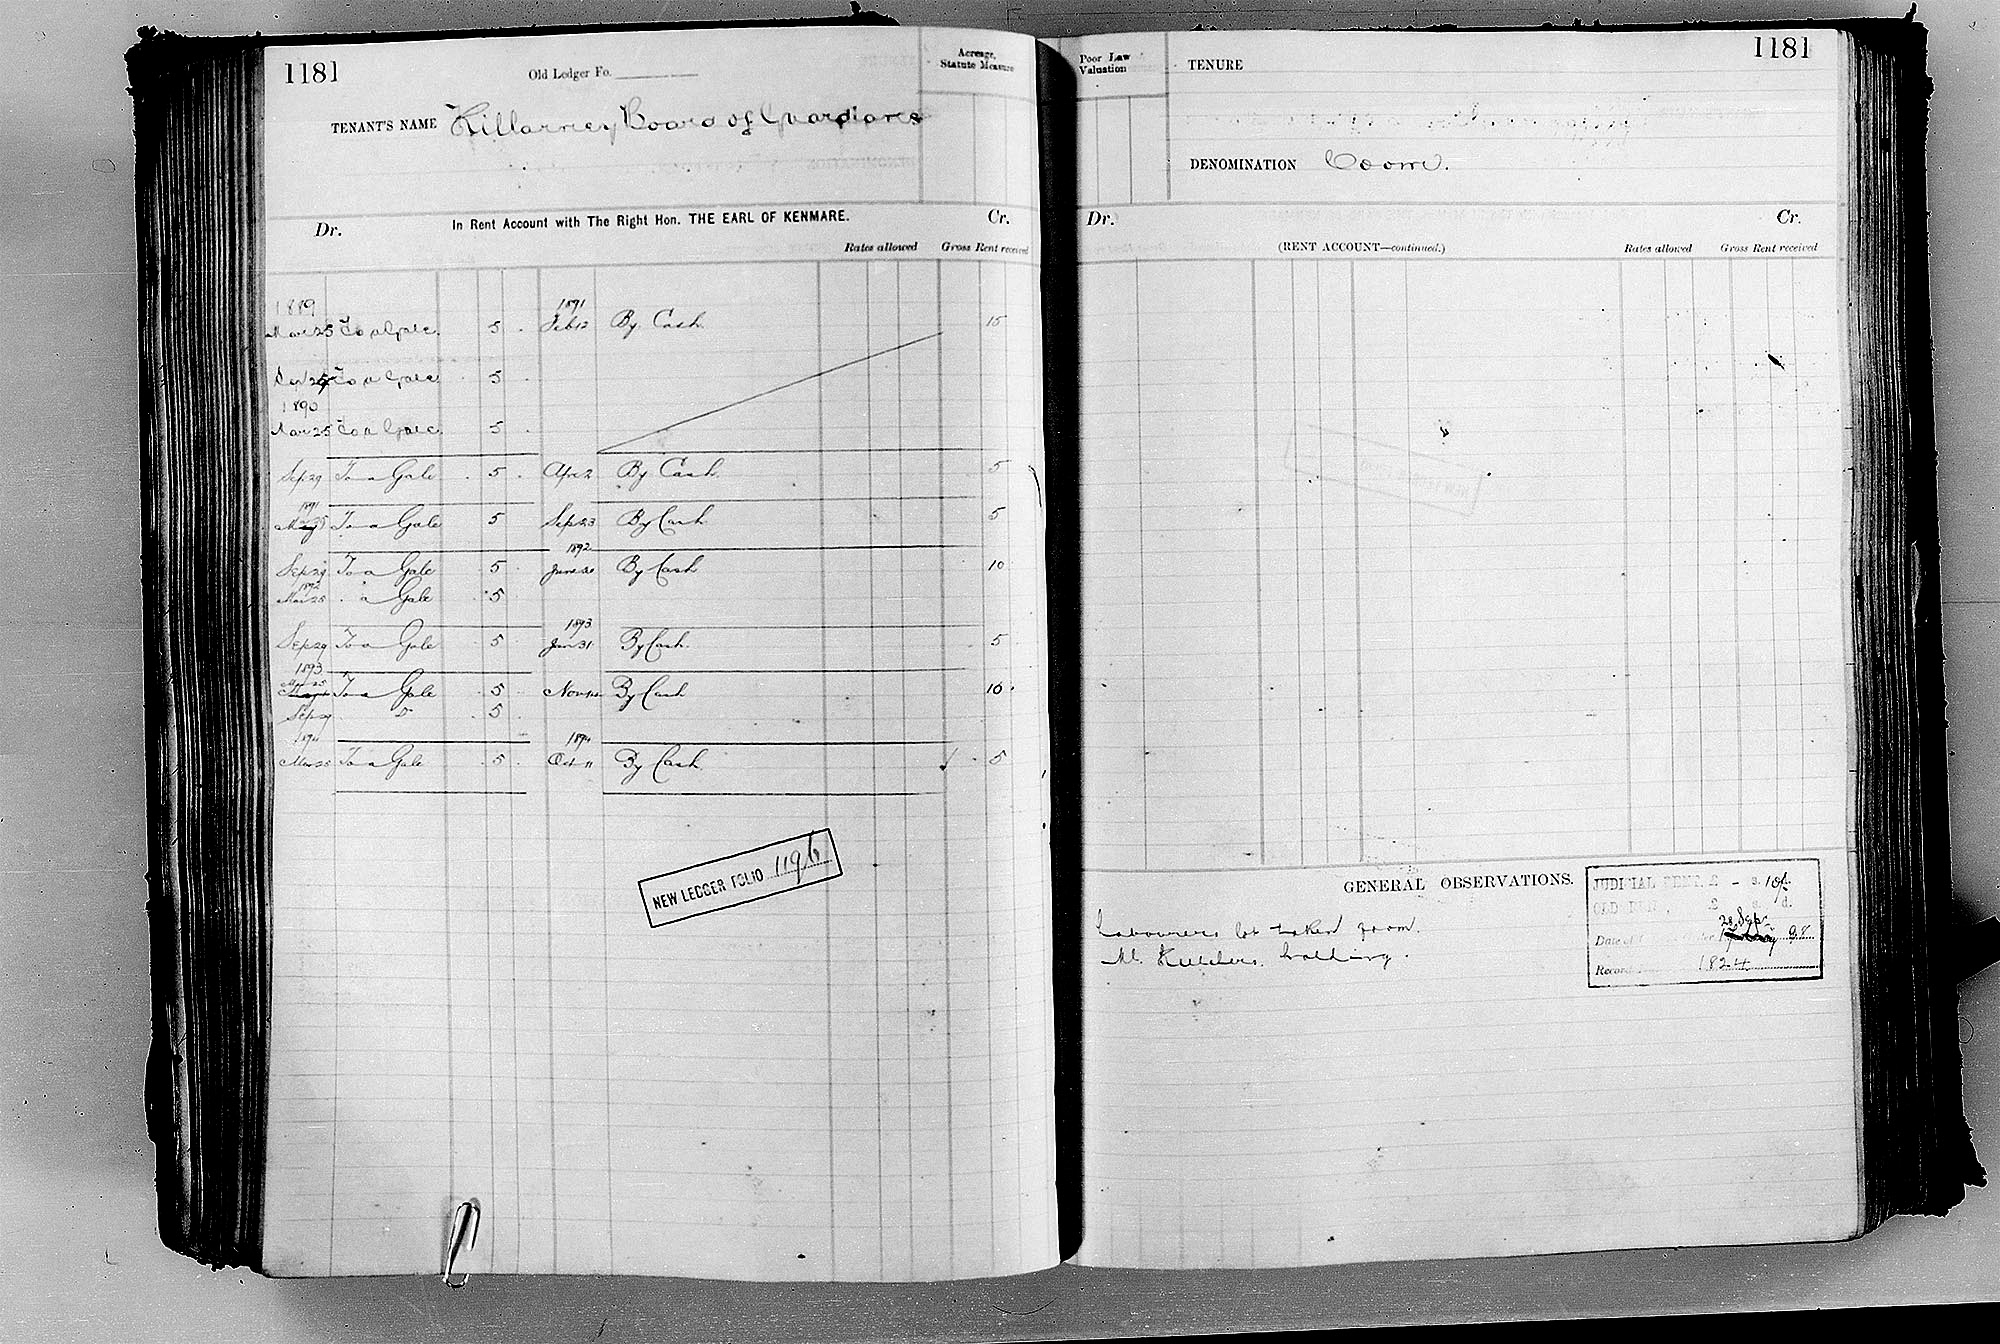 1181
Old Ledger Fo.
Acreage, Statute Measure
TENANT'S NAME Killarney Board of Guardians
Dr. In Rent Account with The Right Hon. THE EARL OF KENMARE. Cr.
Rates allowed Gross Rent received
1889 1891
Mar 25 To a Gale 5 . Feb 12 By Cash 15
Sep 29 To a Gale . 5 .
1890
Mar 25 To a Gale 5 .
Sep 29 To a Gale . 5 . Apr 2 By Cash 5
1891
To a Gale 5 Sep 23 By Cash 5
1892
Sep 29 To a Gale 5 June By Cash 10
1892
Mar 25 . a Gale 5
1893
Sep 29 To a Gale . 5 . Jan 31 By Cash . 5
1893
Mar 25 To a Gale . 5 . Nov By Cash 10 .
Sep 29 Do . 5 .
1894 1894
Mar 25 To a Gale . 5 . Oct 11 By Cash . 5
NEW LEDGER FOLIO 1196
Poor Law Valuation
TENURE
1181
DENOMINATION Coom.
Dr. Cr.
(RENT ACCOUNT—continued.) Rates allowed Gross Rent received
GENERAL OBSERVATIONS.
Labourers lot taken from
M. holding.
JUDICIAL RENT, £ - s. 10/- d.
OLD £ s. d.
28 Sep
Date of 98
Record 1824